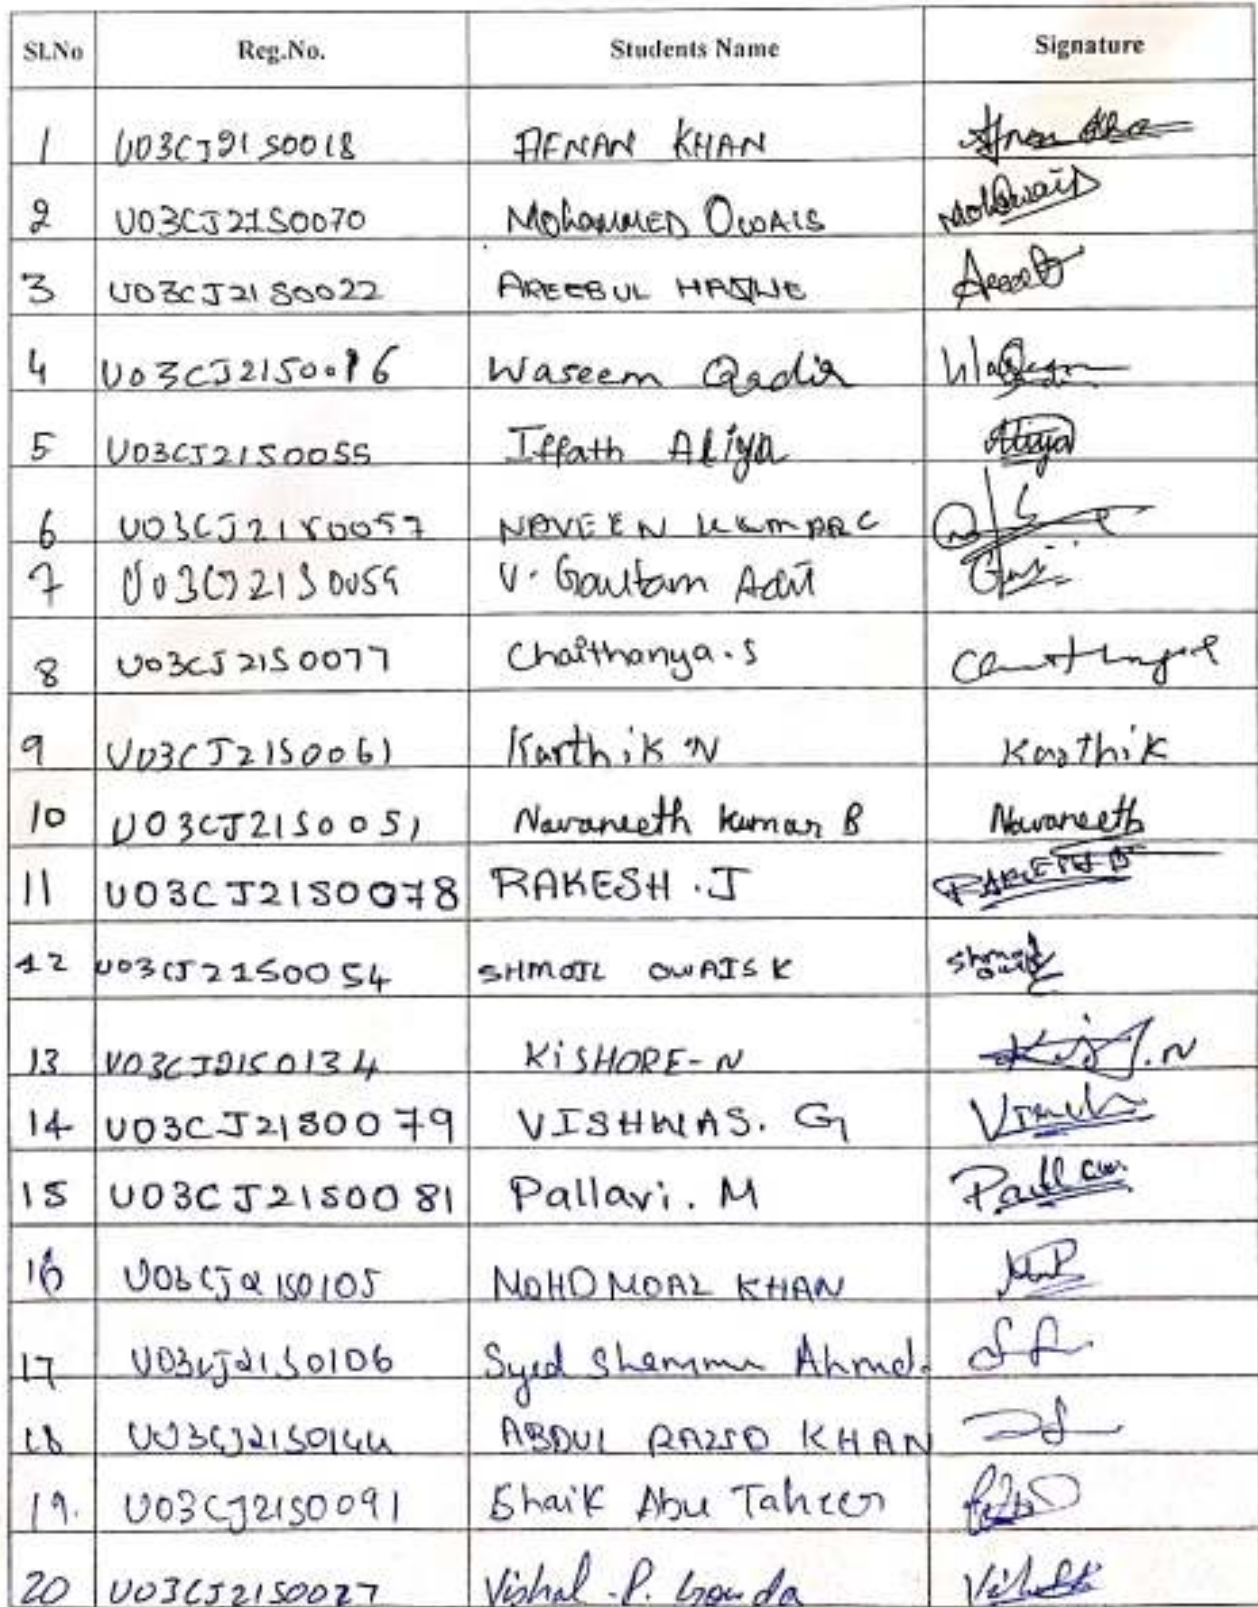 Sl.No Reg.No. Students Name Signature
1 U03CJ21S0018 AFNAN KHAN Afnan Khan
2 U03CJ21S0070 MOHAMMED OWAIS MohOwais
3 U03CJ21S0022 AREEBUL HAQUE Areeb
4 U03CJ21S0016 Waseem Qadir
5 U03CJ21S0055 Iffath Aliya Aliya
6 U03CJ21S0057 NAVEEN KUMAR C
7 U03CJ21S0059 V. Goultam Adit
8 U03CJ21S0077 Chaithanya.S
9 U03CJ21S0061 Karthik N Karthik
10 U03CJ21S0051 Navaneeth kumar B Navaneeth
11 U03CJ21S0078 RAKESH .J
12 U03CJ21S0054 SHMOIL OWAIS K
13 U03CJ21S0134 KiSHORE-N
14 U03CJ21S0079 VISHWAS. G
15 U03CJ21S0081 Pallavi. M
16 U03CJ21S0105 MOHD MOAZ KHAN
17 U03CJ21S0106 Syed Ahmed.
18 U03CJ21S0144 ABDUL KHAN
19. U03CJ21S0091 Shaik Abu Taheer
20 U03CJ21S0027 Vishal .P. Gowda